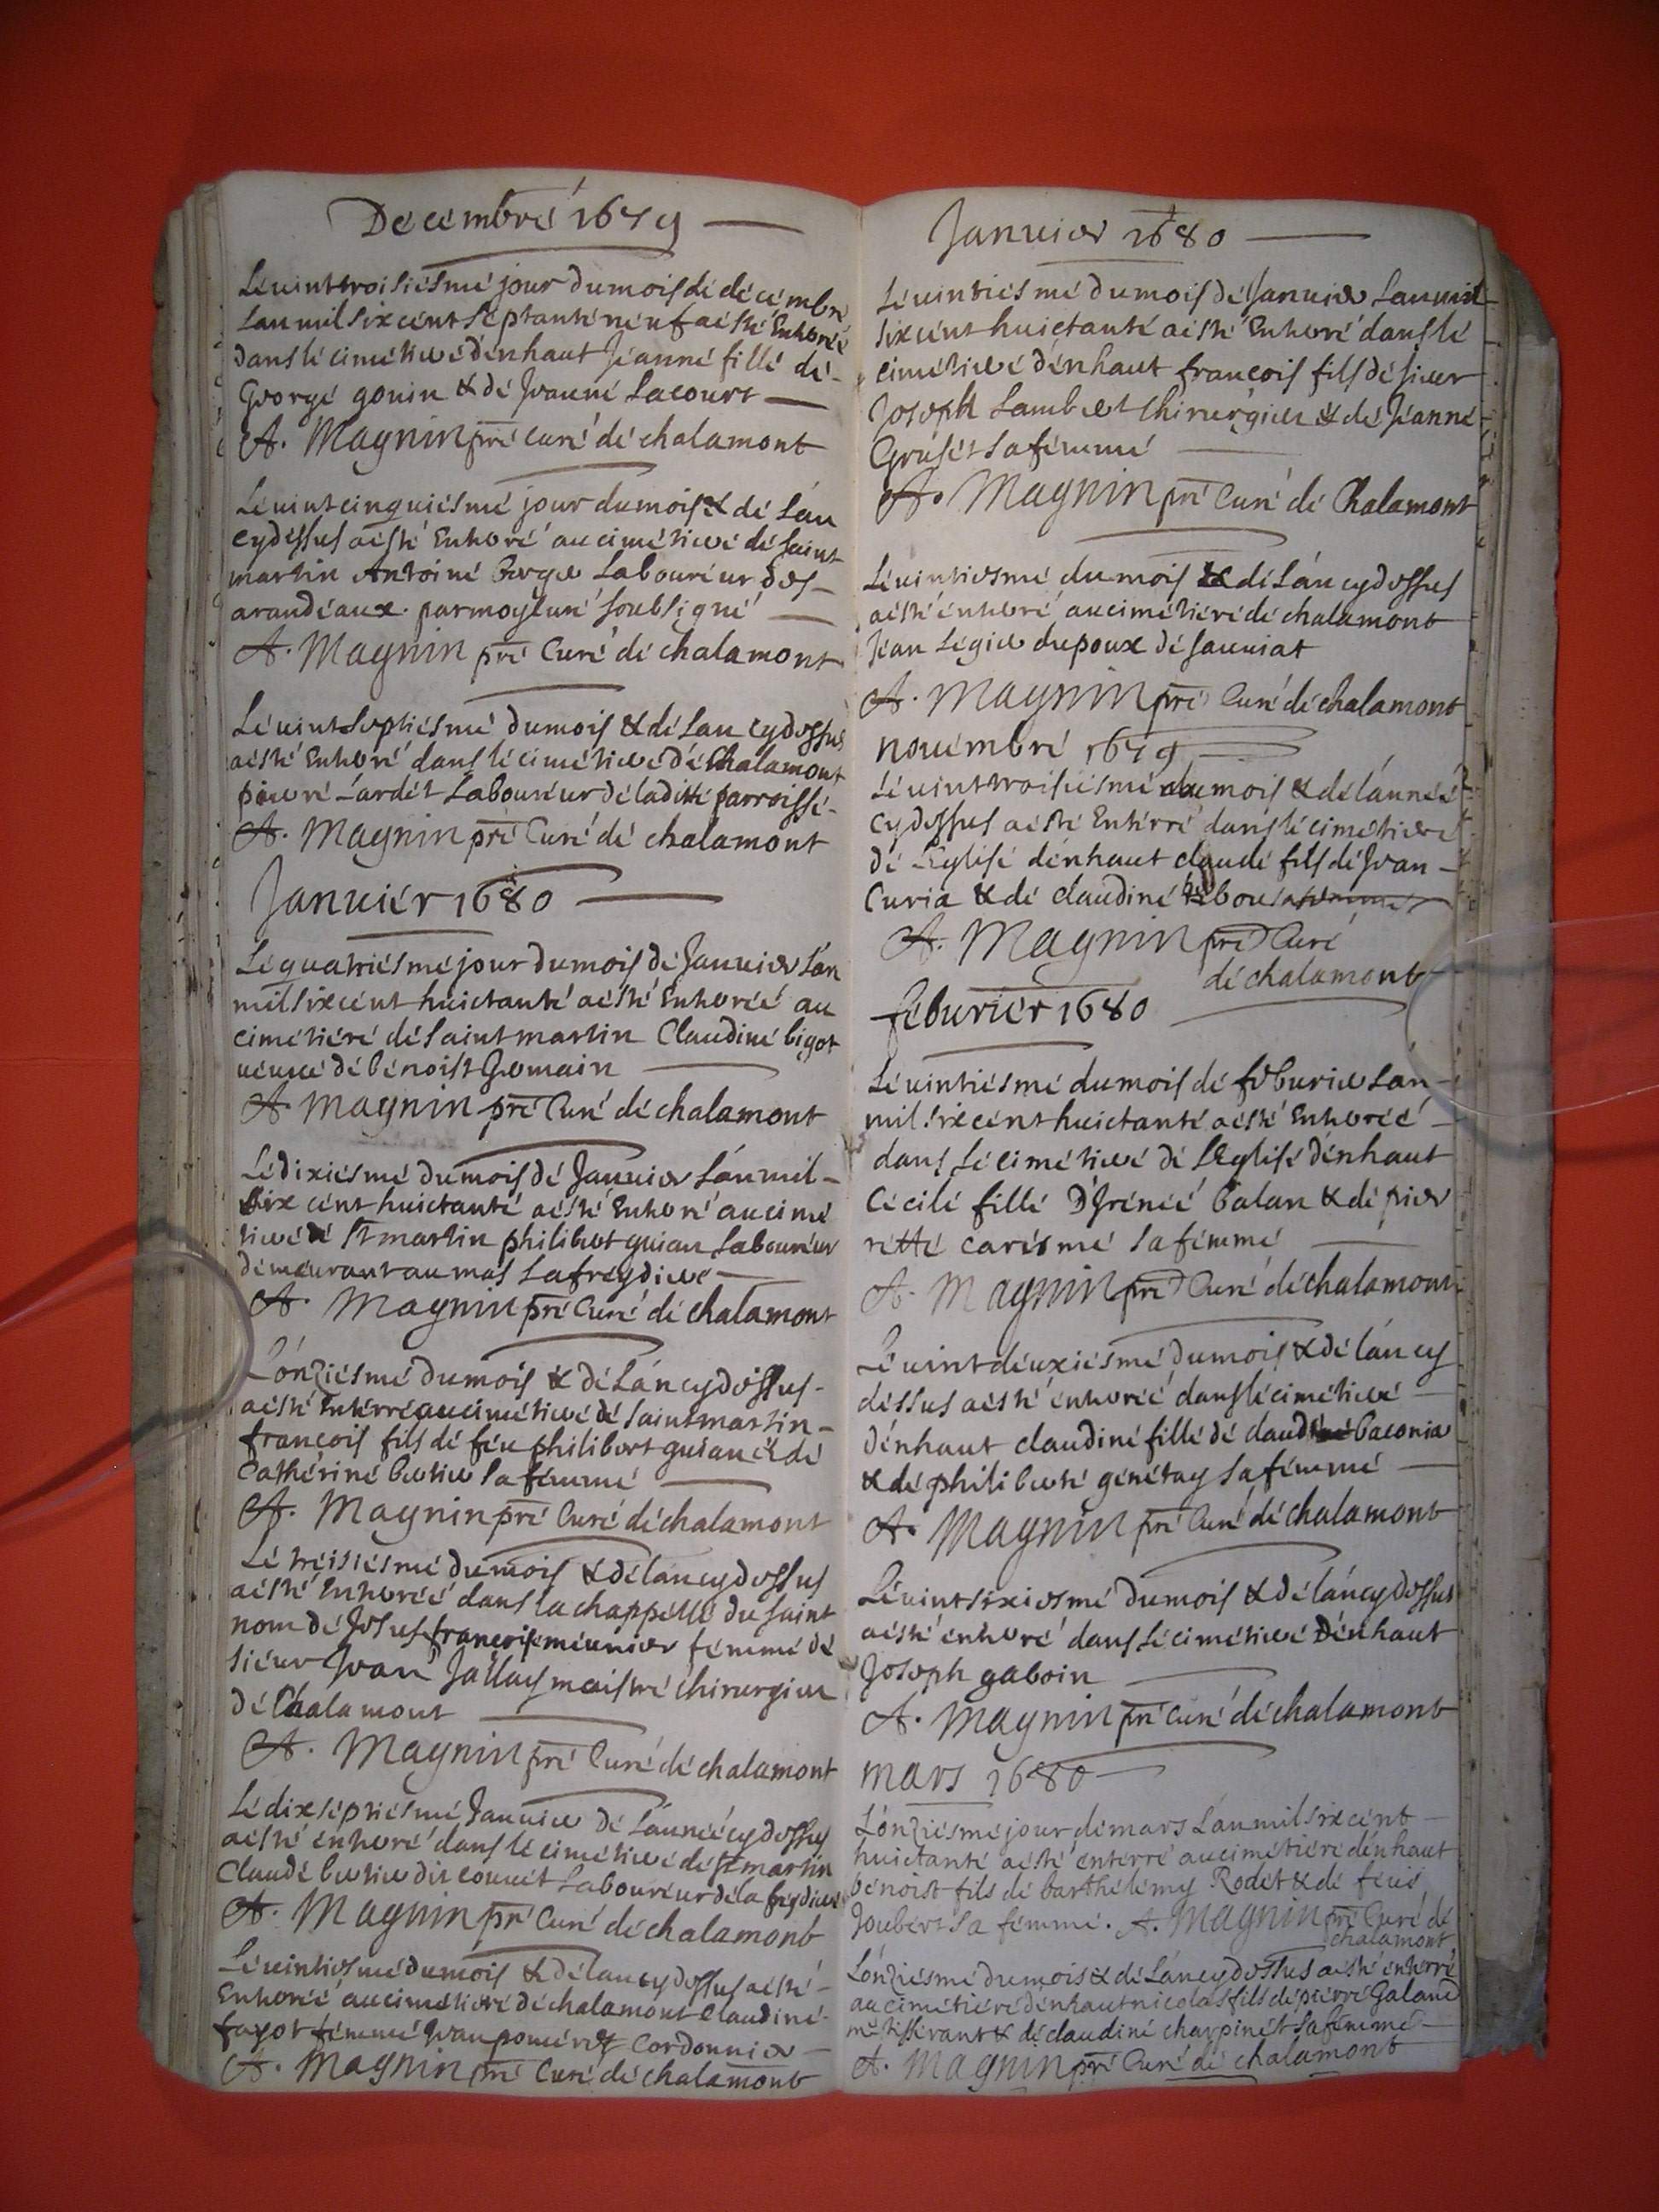 Décémbré 1679
Lé vint troisiésmé jour du mois dé décémbré
Lan mil six cént séptanté néuf a ésté Enterréé
dans lé cimétieré dénhaut Jéanné fillé dé
George gonin & dé Jeanné Lacourt
A. Magnin pré curé dé chalamont
Lé vint cinquiésmé jour du mois & dé Lán
cydéssus a ésté Enterré au cimétieré dé saint
martin Antoiné Berger Labouréur des
arandéaux par moy curé soubsigné
A. Magnin pré Curé dé chalamont
Lé vint septiésmé du mois & dé Lan cydessus
a ésté Enterré dans lé cimétieré dé Chalamont
pierré Lardét Labouréur dé laditté parroissé
A. Magnin pré Curé dé chalamont
Januiér 1680
Lé quatriésmé jour du mois dé Januier Lán
mil six cént huictanté a ésté Enterréé au
cimétiéré dé saint martin Claudiné bigot
véuué dé bénoist Gemain
A. Magnin pré Curé dé chalamont
Lé dixiésmé du mois dé Januier Lán mil
six cént huictanté a ésté Enterré au cimé
tieré dé St martin philibert guian Labouréur
déméurant au mas Lafreydiere
A. Magnin pré Curé dé chalamont
Lónziésmé du mois & dé Lán cydessus
a ésté Entérré au cimétieré dé saint martin
françois fils dé féu philibert guian ét dé
Cathériné bertier sa fémmé
A. Magnin pré Curé dé chalamont
Lé tréisiésmé du mois & dé lán cydessus
a ésté Enterréé dans la chappéllé du saint
nom dé Jesus françoise méunier fémmé dé
siéur Jean Jallay maistré chirurgien
dé Chalamont
A. Magnin pré Curé dé chalamont
Lé dix séptiésmé Januier dé Lánnéé cydessus
a ésté énterré dans lé cimétieré dé St martin
Claudé bertier dit couét Labouréur dé la freydiere
A. Magnin pré Curé dé chalamont
Lé vintiesmé du mois & dé lan cydessus a ésté
Enterréé au cimétieré dé chalamont Claudiné
fayot fémmé Jean poméret Cordonnier
A. Magnin pré Curé dé chalamont
Januier 1680
Lé vintiésmé du mois dé Januier Lan mil
six cént huictanté a ésté Enterré dans lé
cimétieré dénhaut françois fils dé sieur
Joseph Lambert Chirurgien & dé Jéanné
Grusét sa fémmé
A. Magnin pré Curé dé Chalamont
Lé vintiesmé du mois & dé Lán cydessus
a ésté énterré au cimétiéré dé chalamont
Jéan Légier du poux dé sauuiat
A. Magnin pré Curé dé chalamont
nouémbré 1679
Lé vint troisiésmé du mois & dé lánnéé
cydessus a ésté Entérré dans lé cimétieré
dé Léglisé dénhaut claudé fils dé Jean
Curia & dé claudiné
A. Magnin pré Curé
dé chalamont
féburiér 1680
Lé vintiésmé du mois dé feburier Lán
mil six cént huictanté a ésté Enterréé
dans Lé cimétieré dé LEglisé dénhaut
Cécilé fillé D'Irénéé Balan & dé pier
retté carésmé sa fémmé
A. Magnin pré Curé dé chalamont
Lé vint déuxiésmé du mois & dé lán cy
déssus a ésté énterréé dans lé cimétieré
dénhaut claudiné fillé dé claudé baconier
& dé philiberté génétay sa fémmé
A. Magnin pré Curé dé chalamont
Lé vint sixiesmé du mois & dé lán cydessus
a ésté énterré dans Lé cimétieré Dénhaut
Joseph gaboin
A. Magnin pré curé dé chalamont
mars 1680
Lónziésmé jour dé mars Lán mil six cént
huictanté a ésté énterré au cimétiéré dénhaut
bénoist fils dé barthélémy Rodét & dé
Joubért sa fémmé. A. Magnin pré Curé dé
chalamont
Lónziésmé du mois & dé Lán cydessus a ésté énterré
au cimétiéré dénhaut nicolas fils dé piérré Galand
mé tisserant & dé claudiné charpinét sa fémmé
A. Magnin pré Curé dé chalamont